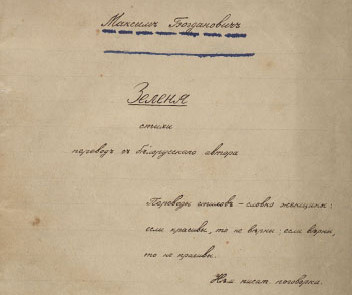 Максимъ Богдановичъ
Зеленя
стихи
переводъ съ бѣлорусскаго автора
Переводы стиховъ – словно женщины:
если красивы, то не вѣрны; если вѣрны,
то не красивы.
поговорка.